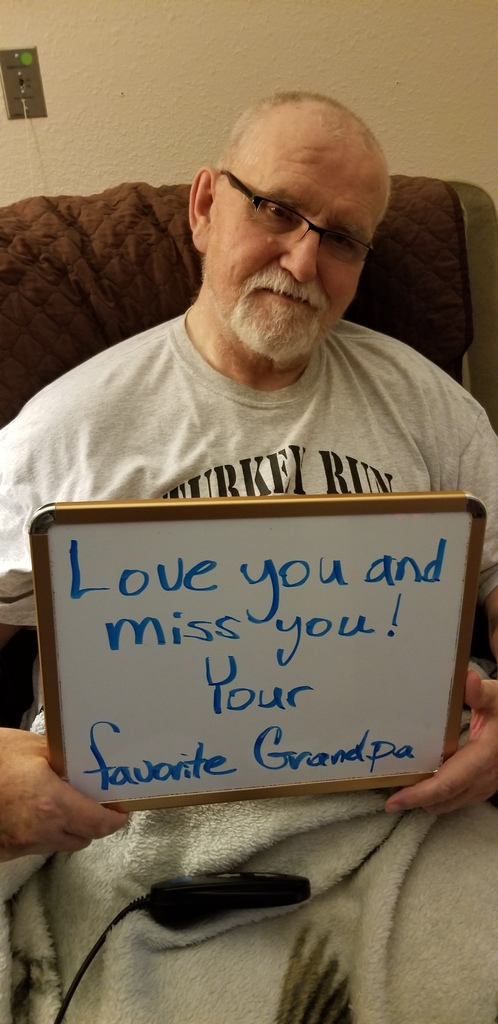 TURKEY RUN
Love you and
miss you!
Your
favorite Grandpa